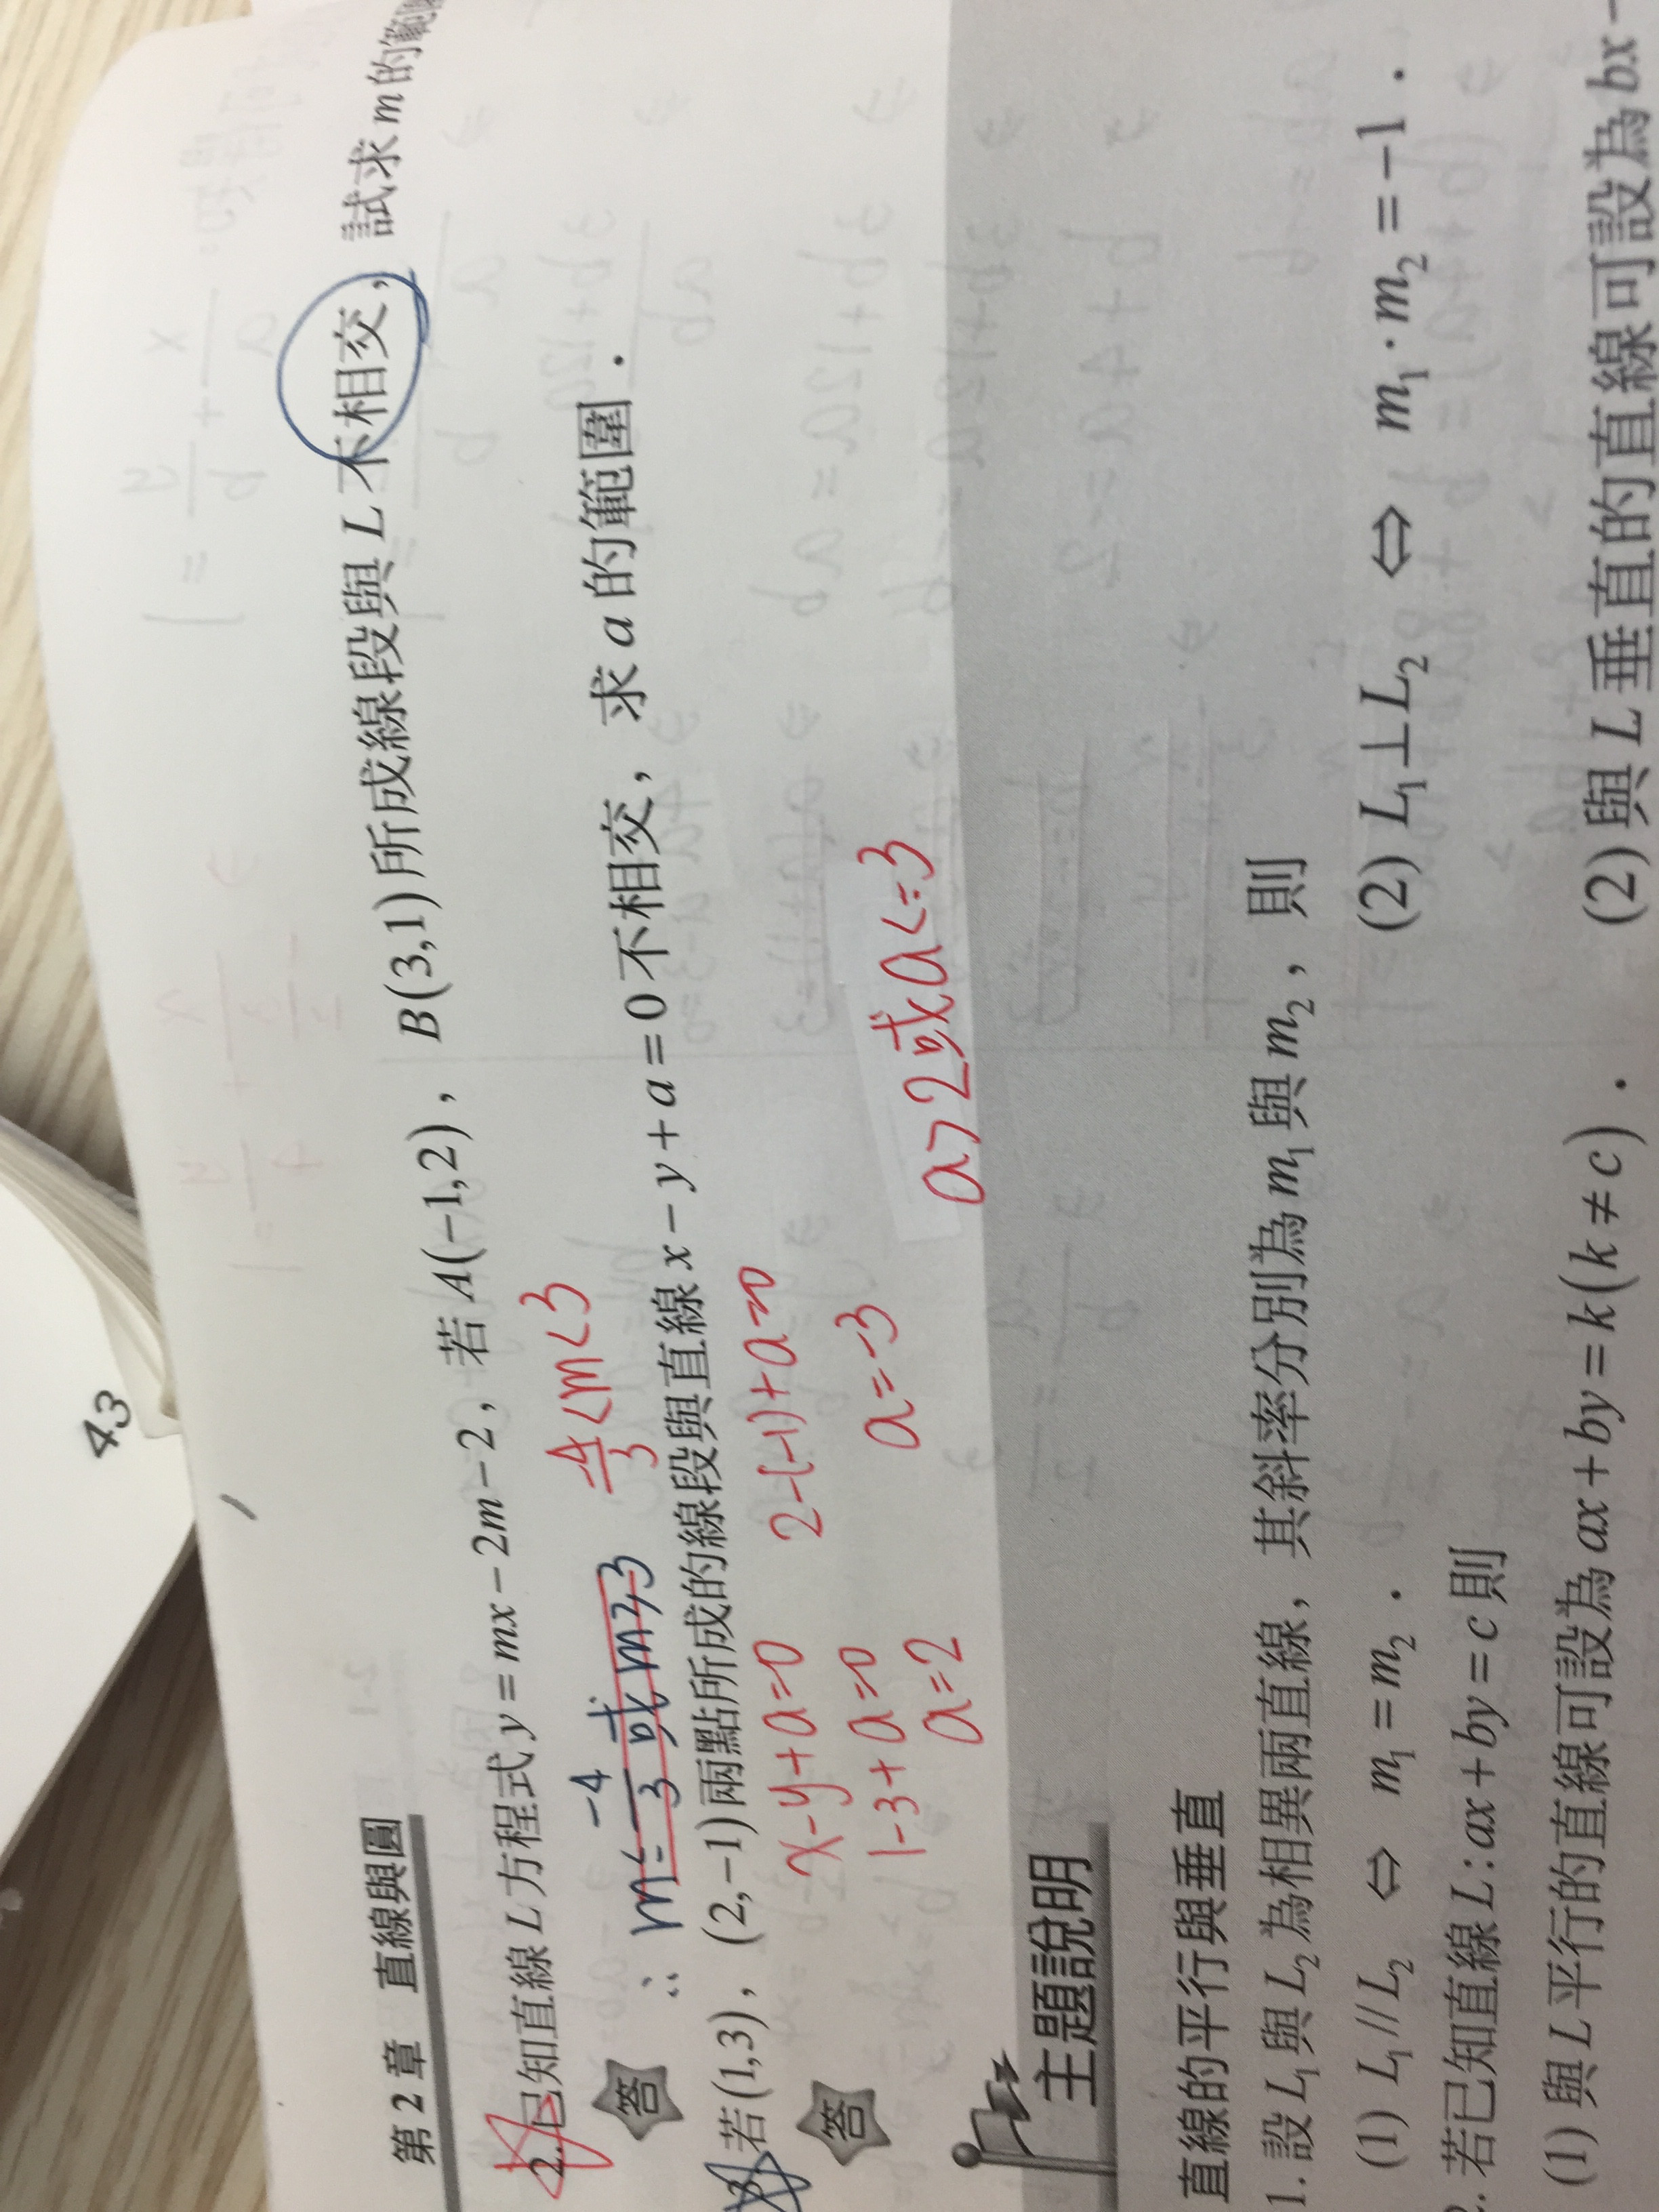 43
第2章 直線與圓
2. 已知直線 L 方程式 y = mx − 2m − 2，若 A(−1,2)，B(3,1) 所成線段與 L 不相交，試求 m 的範
答 ∴ m ≤ -4/3 或 m ≥ 3 -4/3 < m < 3
若 (1,3)，(2,−1) 兩點所成的線段與直線 x − y + a = 0 不相交，求 a 的範圍．
答 x-y+a=0 2-(-1)+a=0
1-3+a=0 a=-3
a=2 a>2或a<-3
主題說明
直線的平行與垂直
1. 設 L₁ 與 L₂ 為相異兩直線，其斜率分別為 m₁ 與 m₂，則
(1) L₁ // L₂ ⇔ m₁ = m₂． (2) L₁ ⊥ L₂ ⇔ m₁ · m₂ = −1．
2. 若已知直線 L : ax + by = c 則
(1) 與 L 平行的直線可設為 ax + by = k (k ≠ c)． (2) 與 L 垂直的直線可設為 bx −